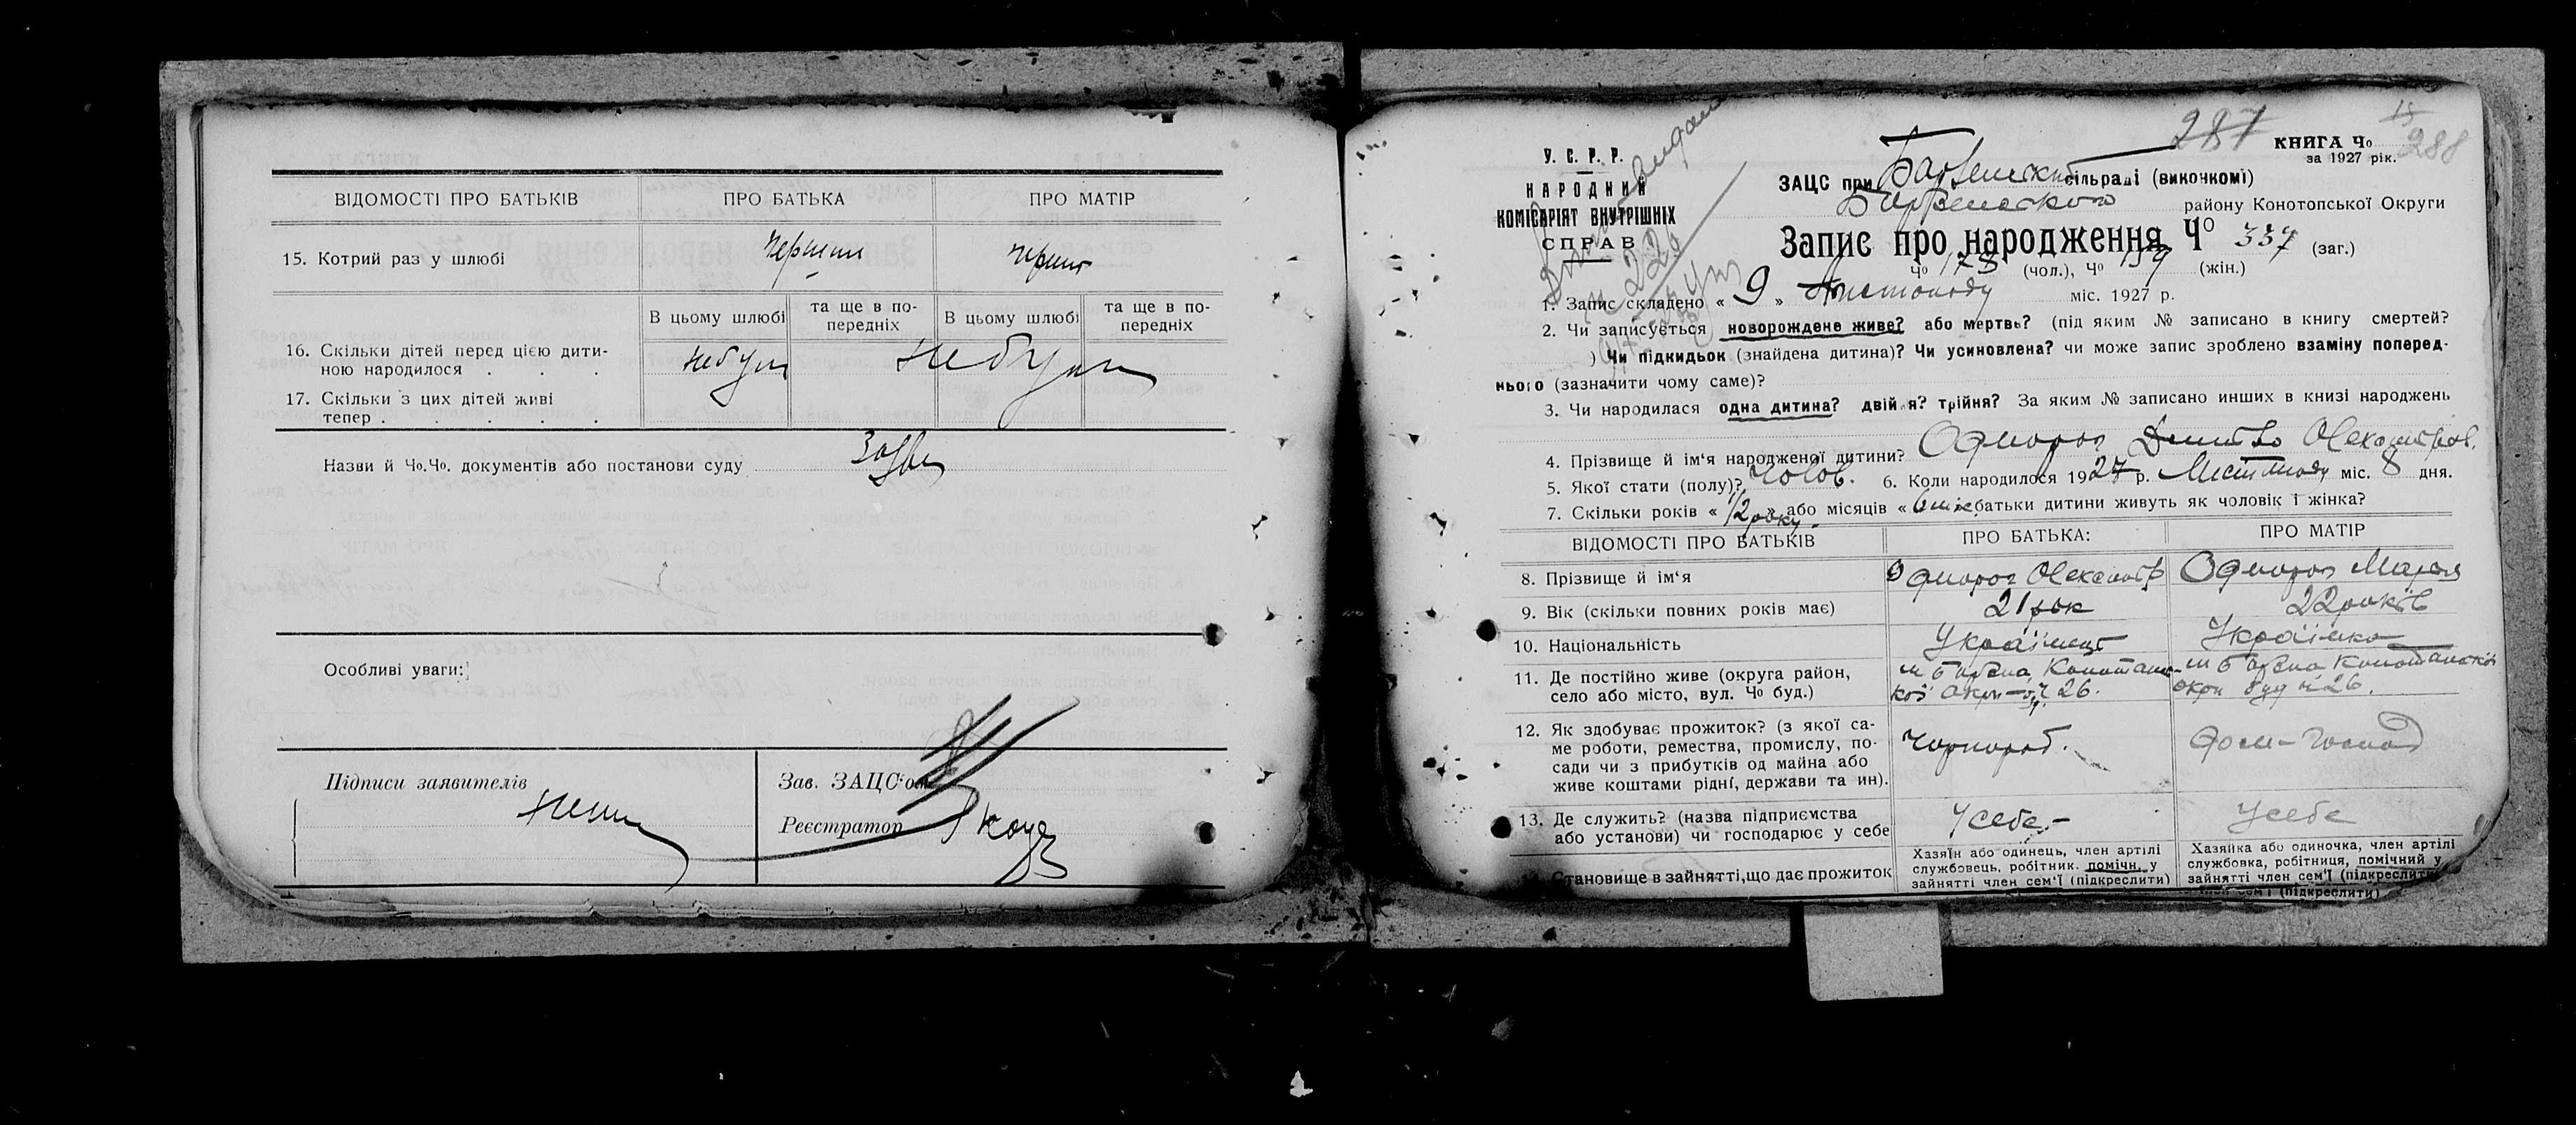 ВІДОМОСТІ ПРО БАТЬКІВ ПРО БАТЬКА ПРО МАТІР
15. Котрий раз у шлюбі перший перший
В цьому шлюбі та ще в по-передніх В цьому шлюбі та ще в по-передніх
16. Скільки дітей перед цією дити-
ною народилося . . .
17. Скільки з цих дітей живі
тепер . . . . .
Назви й Чо.Чо. документів або постанови суду
Особливі уваги:
Підписи заявителів
Зав. ЗАЦС'ом
Реєстратор
287
15
288
У. С. Р. Р.
НАРОДНИЙ
КОМІСАРІЯТ ВНУТРІШНІХ
СПРАВ
КНИГА Чо
за 1927 рік.
ЗАЦС при сільраді (виконкомі)
району Конотопської Округи
Запис про народження Чо 337 (заг.)
Чо 178 (чол.), Чо 159 (жін.)
1. Запис складено « 9 » Листопаду міс. 1927 р.
2. Чи записується новорождене живе? або мертве? (під яким № записано в книгу смертей?
) Чи підкидьок (знайдена дитина)? Чи усиновлена? чи може запис зроблено взаміну поперед-
нього (зазначити чому саме)?
3. Чи народилася одна дитина? двійня? трійня? За яким № записано инших в книзі народжень
4. Прізвище й ім'я народженої дитини? Однорог Дмитро Олександров.
5. Якої стати (полу)? Чолов. 6. Коли народилося 1927 р. Листопаду міс. 8 дня.
7. Скільки років « 1/2 року » або місяців « 6 міс. батьки дитини живуть як чоловік і жінка?
ВІДОМОСТІ ПРО БАТЬКІВ ПРО БАТЬКА: ПРО МАТІР
8. Прізвище й ім'я Однорог Олександр Однорог Марія
9. Вік (скільки повних років має) 21 рок 22 років
10. Національність Українець Українка
11. Де постійно живе (округа район,
село або місто, вул. Чо буд.)
м Борзна Конотопс-
кої окрн 26.
м Борзна Конотопської
окрн буд № 26.
12. Як здобуває прожиток? (з якої са-
ме роботи, ремества, промислу, по-
сади чи з прибутків од майна або
живе коштами рідні, держави та ин).
Чорнороб.
Дом-Господ
13. Де служить? (назва підприємства
або установи) чи господарює у себе
У себе.-
У себе
Становище в зайнятті, що дає прожиток
Хазяїн або одинець, член артілі
службовець, робітник. помічн. у
зайнятті член сем'ї (підкреслити)
Хазяйка або одиночка, член артілі
службовка, робітниця, помічний у
зайнятті член сем'ї (підкреслити)